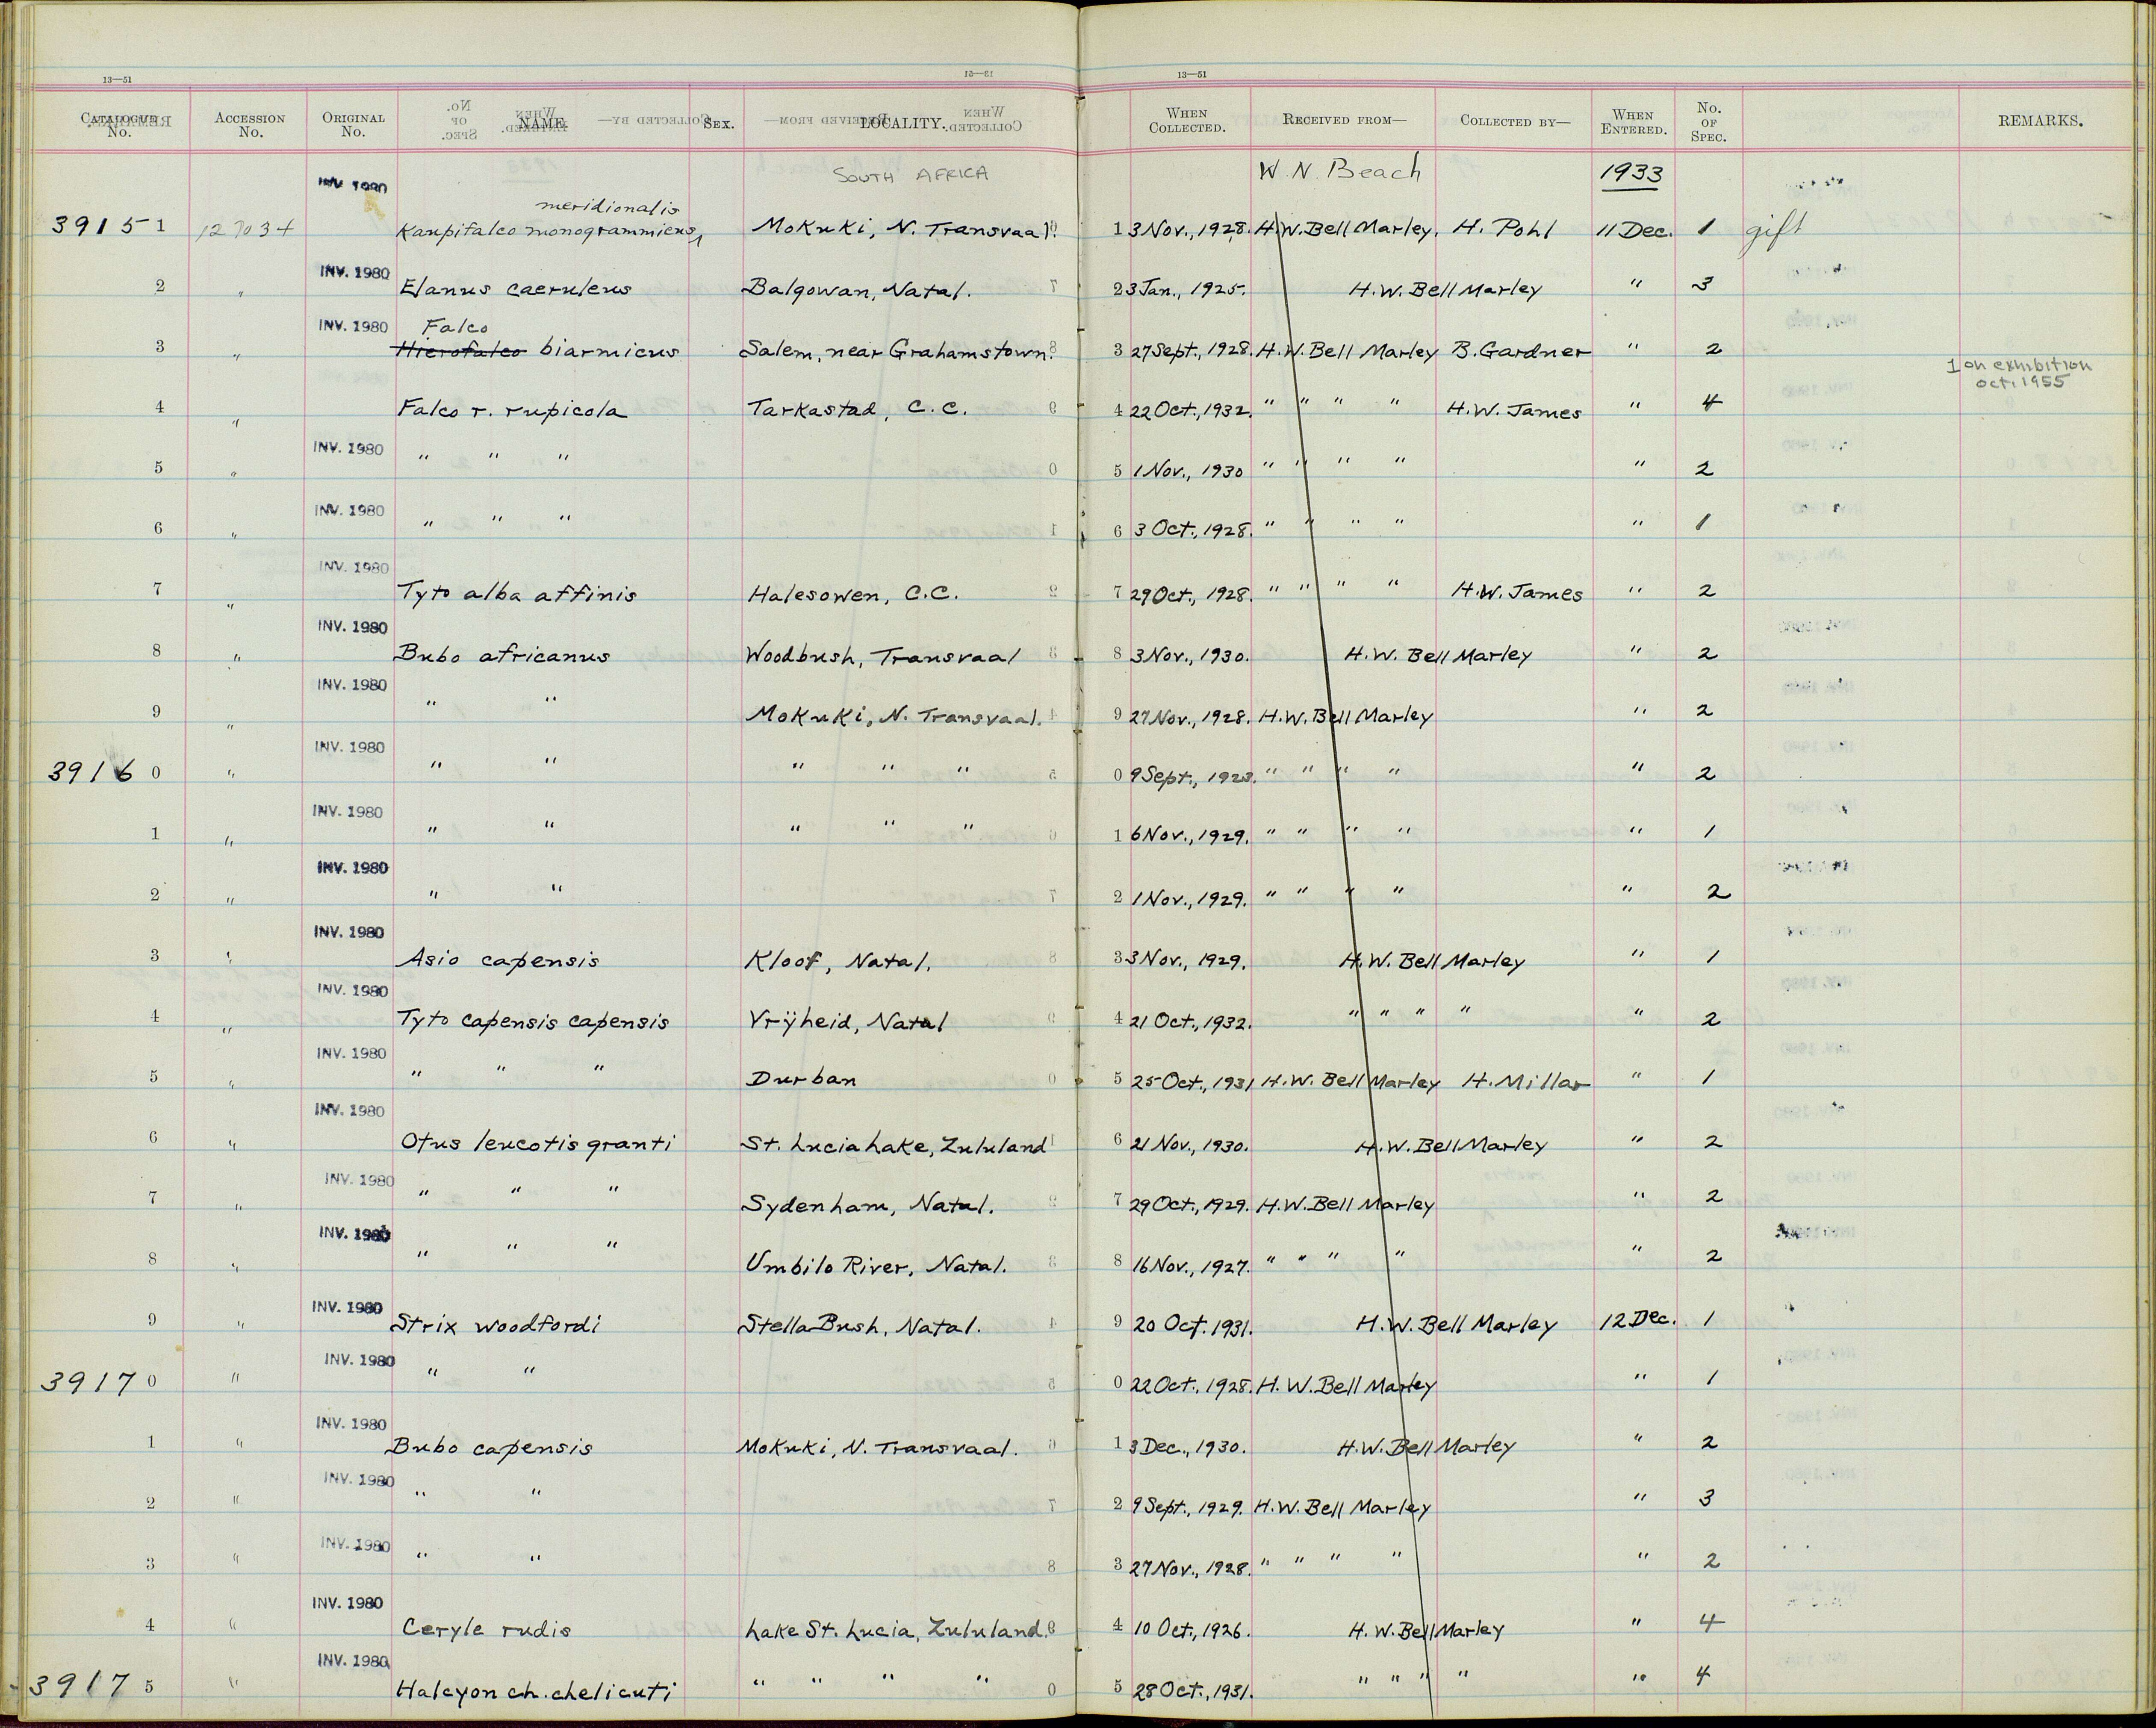 13—51 13—51
CATALOGUE No. ACCESSION No. ORIGINAL No. NAME SEX. LOCALITY. WHEN COLLECTED. RECEIVED FROM— COLLECTED BY— WHEN ENTERED. No. OF SPEC. REMARKS.
SOUTH AFRICA W. N. Beach 1933
meridionalis
3915 1 127034 Kaupifalco monogrammicus, Mokuki, N. Transvaal. 1 3 Nov., 1928. H.W. Bell Marley. H. Pohl 11 Dec. 1 gift
INV. 1980
2 " Elanus caeruleus Balgowan, Natal. 2 3 Jan., 1925. H.W. Bell Marley " 3
INV. 1980 Falco
3 " Hierofalco biarmicus Salem, near Grahamstown. 3 27 Sept., 1928. H.W. Bell Marley B. Gardner " 2
1 on exhibition
oct. 1955
4 " Falco r. rupicola Tarkastad, C.C. 4 22 Oct., 1932. " " " " H.W. James " 4
INV. 1980
5 " " " " 5 1 Nov., 1930 " " " " " 2
INV. 1980
6 " " " " 6 3 Oct., 1928. " " " " " 1
INV. 1980
7 " Tyto alba affinis Halesowen, C.C. 7 29 Oct., 1928. " " " " H.W. James " 2
INV. 1980
8 " Bubo africanus Woodbush, Transvaal 8 3 Nov., 1930. H.W. Bell Marley " 2
INV. 1980
9 " " " Mokuki, N. Transvaal. 9 27 Nov., 1928. H.W. Bell Marley " 2
INV. 1980
3916 0 " " " " " " 0 9 Sept., " " " " " 2
INV. 1980
1 " " " " " " 1 6 Nov., 1929. " " " " " 1
INV. 1980
2 " " " 2 1 Nov., 1929. " " " " " 2
INV. 1980
3 " Asio capensis Kloof, Natal. 3 3 Nov., 1929. H.W. Bell Marley " 1
INV. 1980
4 " Tyto capensis capensis Vrÿheid, Natal 4 21 Oct., 1932. " " " " " 2
INV. 1980
5 " " " " Durban 5 25 Oct., 1931 H.W. Bell Marley H. Millar " 1
INV. 1980
6 " Otus leucotis granti St. Lucia Lake, Zululand 6 21 Nov., 1930. H.W. Bell Marley " 2
INV. 1980
7 " " " " Sydenham, Natal. 7 29 Oct., 1929. H.W. Bell Marley " 2
INV. 1980
8 " " " " Umbilo River, Natal. 8 16 Nov., 1927. " " " " " 2
INV. 1980
9 " Strix woodfordi Stella Bush, Natal. 9 20 Oct. 1931. H.W. Bell Marley 12 Dec. 1
INV. 1980
3917 0 " " " 0 22 Oct., 1928. H.W. Bell Marley " 1
INV. 1980
1 " Bubo capensis Mokuki, N. Transvaal. 1 3 Dec., 1930. H.W. Bell Marley " 2
INV. 1980
2 " " " 2 9 Sept., 1929. H.W. Bell Marley " 3
INV. 1980
3 " " " 3 27 Nov., 1928. " " " " " 2
INV. 1980
4 " Ceryle rudis Lake St. Lucia, Zululand. 4 10 Oct., 1926. H.W. Bell Marley " 4
INV. 1980
3917 5 " Halcyon ch. chelicuti " " " " 5 28 Oct., 1931. " " " " " 4